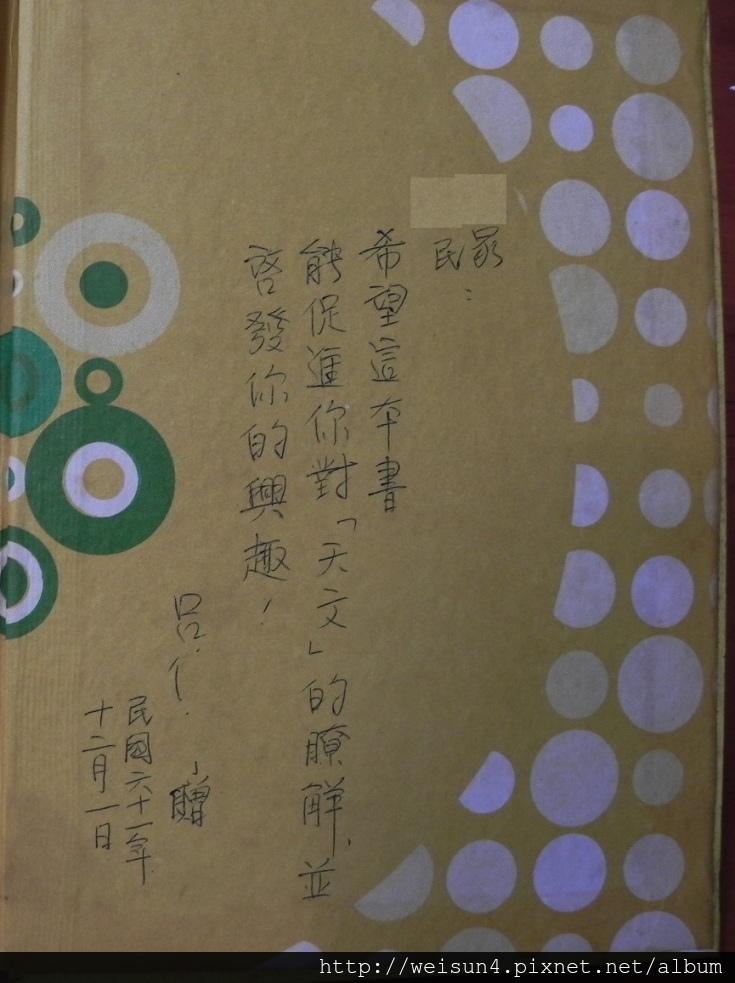 民：
希望這本書
能促進你對「天文」的瞭解，並
啓發你的興趣！
呂 贈
民國六十一年
十二月一日
http://weisun4.pixnet.net/album